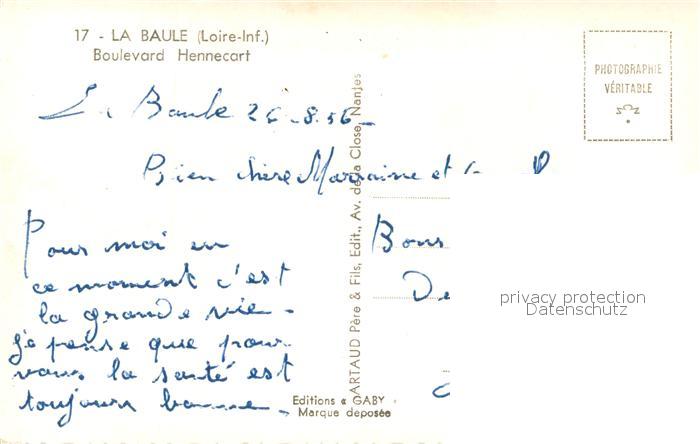 17 - LA BAULE (Loire-Inf.)
Boulevard Hennecart
PHOTOGRAPHIE
VÉRITABLE
La Baule 26-8.56-
Bien chère Marraine et
Pour moi en
ce moment c'est
la grande vie-
je pense que pour
vous la santé est
toujours bonne-
ARTAUD Père & Fils, Edit., Av. de la Close, Nantes
Bons
De
privacy protection
Datenschutz
Editions « GABY »
Marque déposée